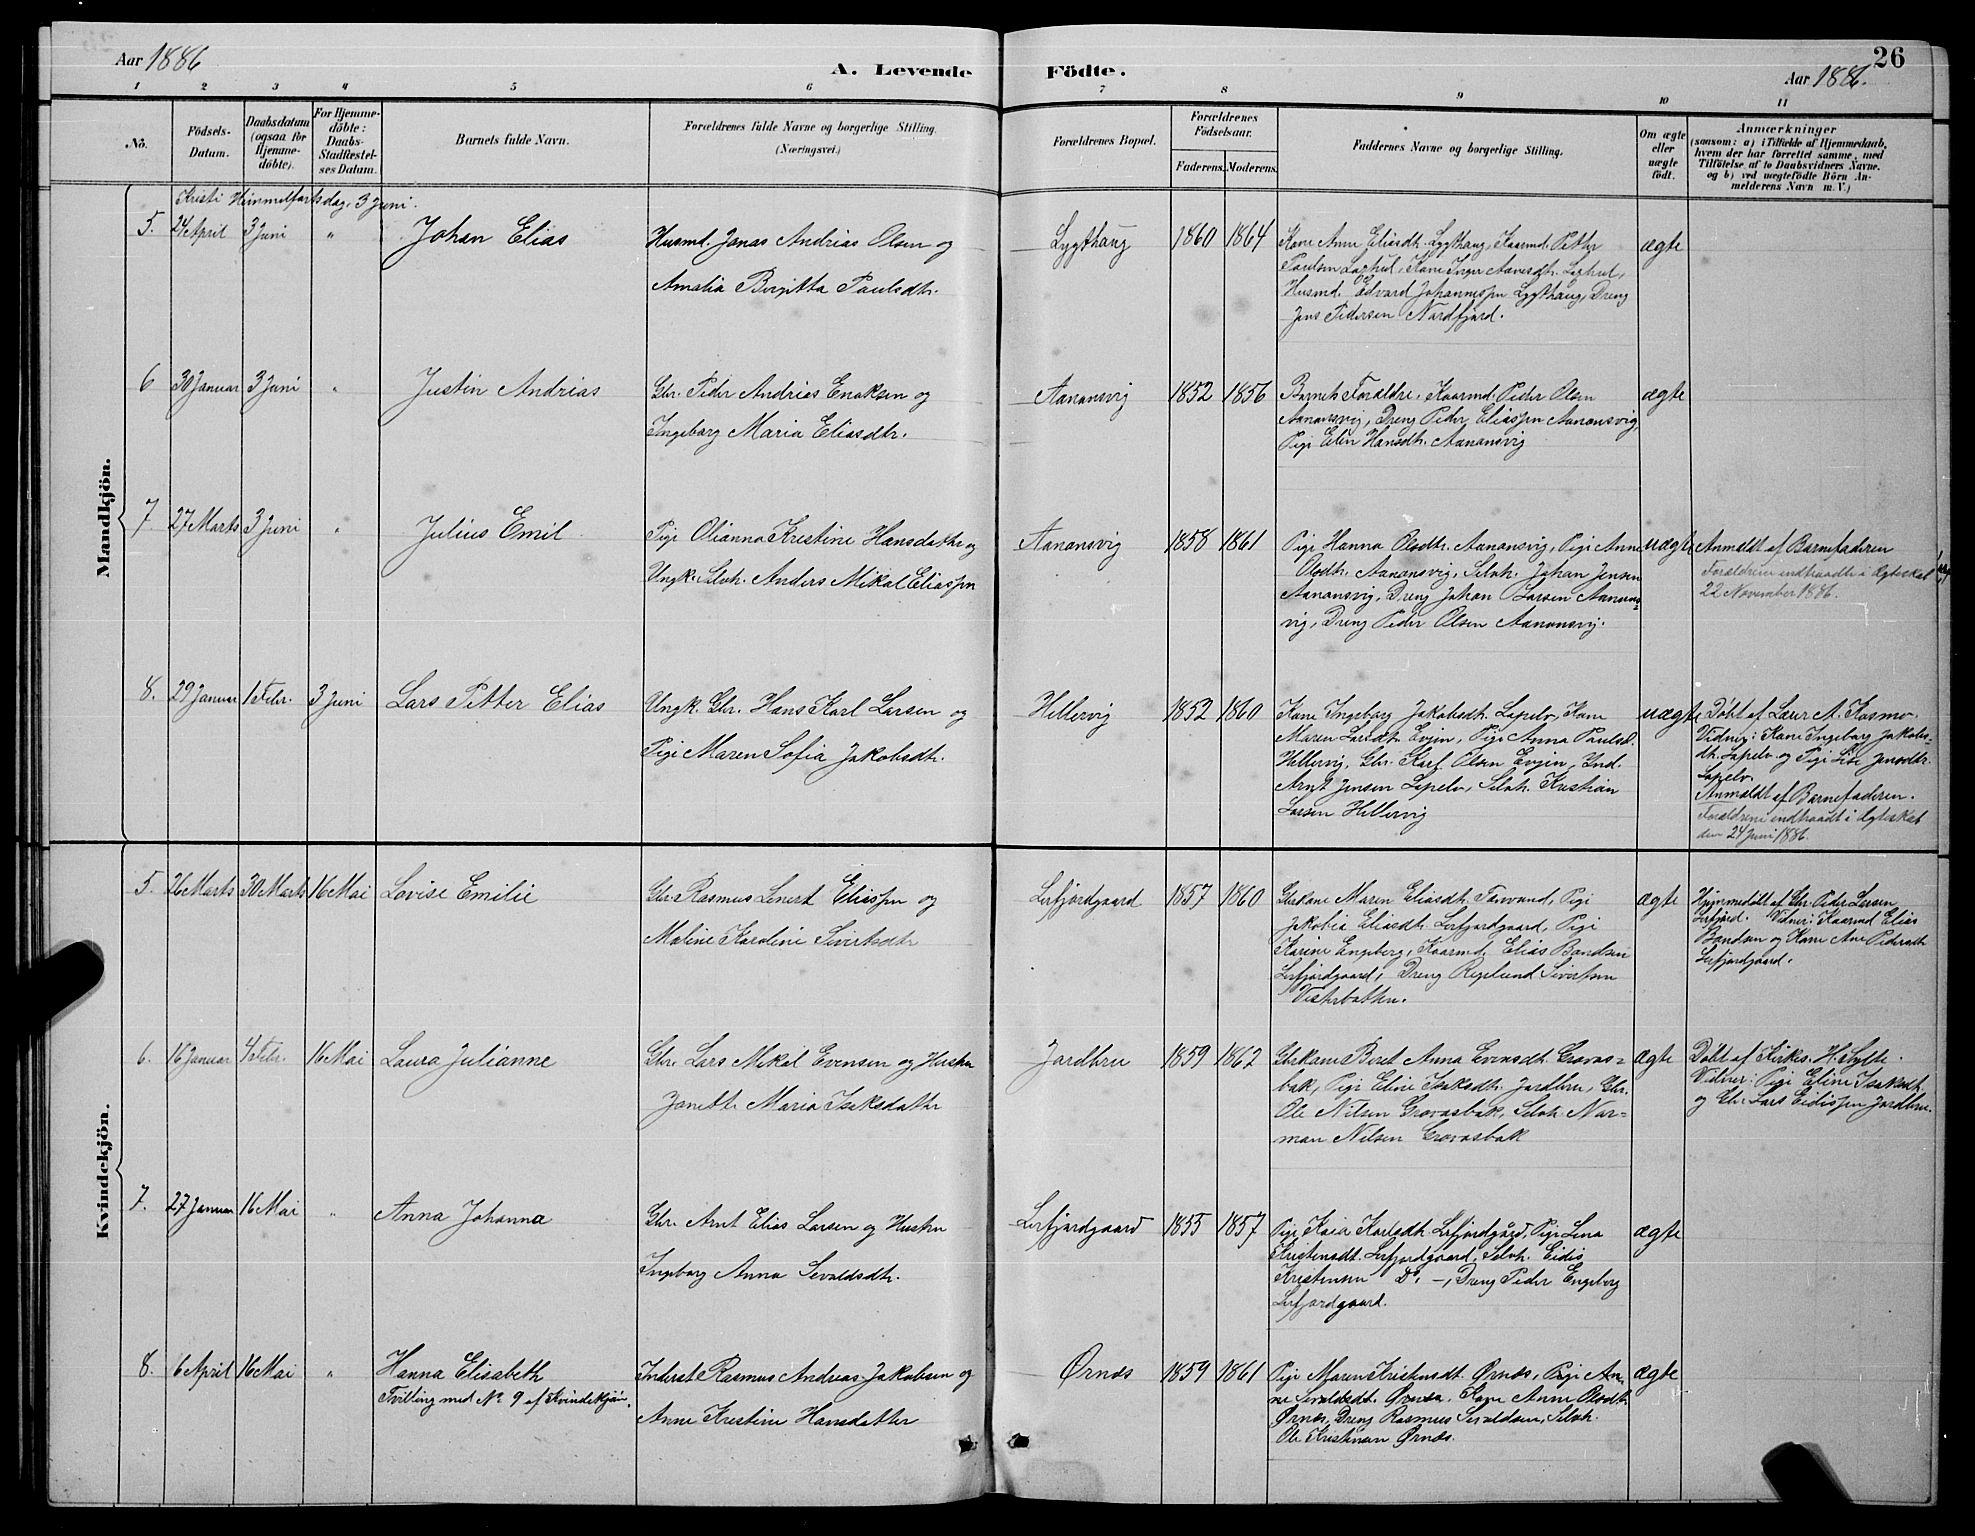 Aar 1886
A. Levende
Födte.
Aar 1886.
26
1 2 3 4 5 6 7 8 9 10 11
No.
Födsels-
Datum.
Daabsdatum
(ogsaa for
Hjemme-
döbte).
For Hjemme-
döbte:
Daabs-
Stadfæstel-
ses Datum.
Barnets fulde Navn.
Forældrenes fulde Navne og borgerlige Stilling.
(Næringsvei.)
Forældrenes Bopæl.
Forældrenes
Födselsaar.
Faderens. Moderens.
Faddernes Navne og borgerlige Stilling.
Om ægte
eller
uægte
født.
Anmærkninger
(saasom: a) i Tilfælde af Hjemmedaab,
hvem der har forrettet samme, med
Tilføielse af to Daabsvidners Navne.
og b) ved uægtefödte Börn An-
melderens Navn m. V.)
Mandkjön.
Kristi Himmelfartsdag, 3 Juni.
5. 24 April 3 Juni " Johan Elias
Husmd. Jonas Andrias Olsen og
Amalia Birgitta Paulsdtr.
Lygthaug 1860 1864
Kone Anne Eliasdtr. Lygthaug, Kaarmd. Petter
Paulsen Kone Inger
Husmd. Edvard Johannessen Lygthaug, Dreng
Jens Pedersen Nordfjord.
ægte
6 30 Januar 3 Juni " Justin Andrias
Gbr. Peder Andrias Enoksen og
Ingeborg Maria Eliasdtr.
Aanonsvig 1852 1856
Barnets Forældre, Kaarmd. Peder Olsen
Aanonsvig, Dreng Peder Eliassen Aanonsvig,
Pige Elen Hansdtr. Aanonsvig
ægte
7 27 Marts 3 Juni " Julius Emil
Pige Olianna Kristine Hansdatter og
Ungk. Selvh. Anders Mikal Eliassen
Aanonsvig 1858 1861
Pige Hanna Olsdtr. Aanonsvig, Pige Anne
Olsdtr. Aanonsvig, Selvh. Johan Jensen
Aanonsvig, Dreng Johan Larsen Aanons-
vig, Dreng Peder Olsen Aanonsvig.
uægte
Anmeldt af Barnefaderen
Forældrene indtraadte i Ægteskab
22 November 1886.
8. 29 Januar 1 Febr. 3 Juni Lars Petter Elias
Ungk. Gbr. Hans Karl Larsen og
Pige Maren Sofia Jakobsdtr.
Hellervig 1852 1860
Kone Ingeborg Jakobsdtr. Lapelv, Kone
Maren Larsdtr. Evjen, Pige Anna Paulsd.
Hellervig, Gbr. Karl Olsen Evjen, Ind.
Arnt Jensen Lapelv, Selvh. Kristian
Larsen Hellervig
uægte
Döbt af Lærer A. Kosmo.
Vidner: Kone Ingeborg Jakobs-
dtr. Lapelv og Pige Lise Jensdtr.
Lapelv.
Anmeldt af Barnefaderen.
Forældrene indtraadt i Ægteskab
den 24 Juni 1886.
Kvindekjön.
5. 26 Marts 30 Marts 16 Mai Lovise Emilie
Gbr. Rasmus Lenert Eliassen og
Maline Karoline Sivertsdtr
Lerfjordgaard 1857 1860
Gbrkone Maren Eliasdtr. Pige
Jakobia Eliasdtr. Lerfjordgaard, Pige
Karine Engeberg, Kaarmd. Elias Bendsen
Lerfjordgaard, Dreng Sivertsen
ægte
Hjemmedöbt af Gbr. Peder Larsen
Lerfjord. Vidner: Kaarmd Elias
Bendsen og Kone Ane Pedersdtr
Lerfjordgaard.
6. 16 Januar 4 Febr. 16 Mai Laura Julianne
Gbr. Lars Mikal Evensen og Hustru
Janette Maria Isaksdatter
Jordbru 1859 1862
Gbrkone Beret Anna Evensdtr. Grovas-
bak, Pige Eline Isaksdtr. Jordbru, Gbr.
Ole Nilsen Grovasbak, Selvh. Nor-
man Nilsen Grovasbak
ægte
Döbt af Kirkes. H. Sylte.
Vidner: Pige Eline Isaksdtr.
og Gbr. Lars Eidissen Jordbru.
7. 27 Januar 16 Mai " Anna Johanna
Gbr. Arnt Elias Larsen og Hustru
Ingeborg Anna Sevaldsdtr.
Lerfjordgaard 1855 1857
Pige Kaia Karlsdtr. Lerfjordgård, Pige Lena
Kristensdtr. Lerfjordgaard, Selvh. Eidis
Kristensen Do. —, Dreng Peder Engeberg
Lerfjordgaard.
ægte
8. 6 April 16 Mai " Hanna Elisabeth
Tvilling med No 9 af Kvindekjön.
Inderst Rasmus Andreas Jakobsen og
Anne Kristine Hansdatter
Ørnes 1859 1861
Pige Maren Kristensdtr. Ørnes, Pige An-
ne Sevaldsdtr. Ørnes, Kone Anne Olsdtr.
Ørnes, Dreng Rasmus Sevaldsen, Selvh.
Ole Kristensen Ørnes.
ægte